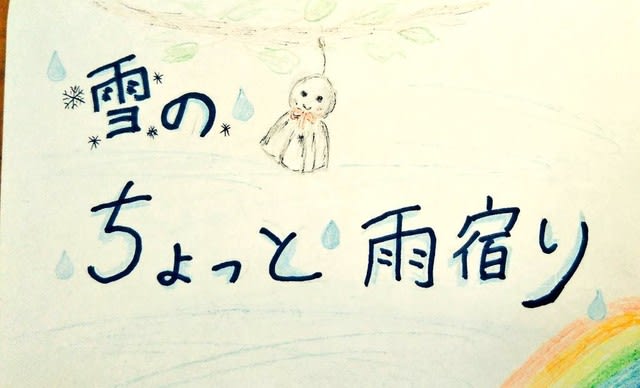 雪の
ちょっと雨宿り